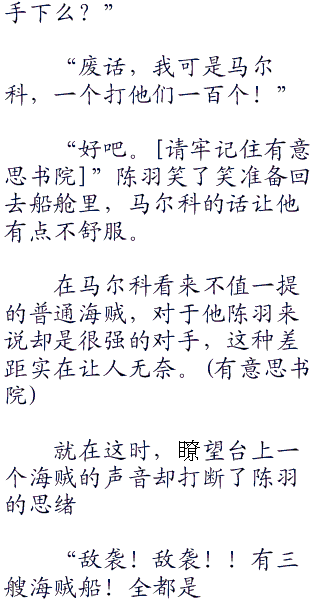 手下么？”
“废话，我可是马尔
科，一个打他们一百个！”
“好吧。[请牢记住有意
思书院]”陈羽笑了笑准备回
去船舱里，马尔科的话让他
有点不舒服。
在马尔科看来不值一提
的普通海贼，对于他陈羽来
说却是很强的对手，这种差
距实在让人无奈。(有意思书
院)
就在这时，瞭望台上一
个海贼的声音却打断了陈羽
的思绪
“敌袭！敌袭！！有三
艘海贼船！全都是